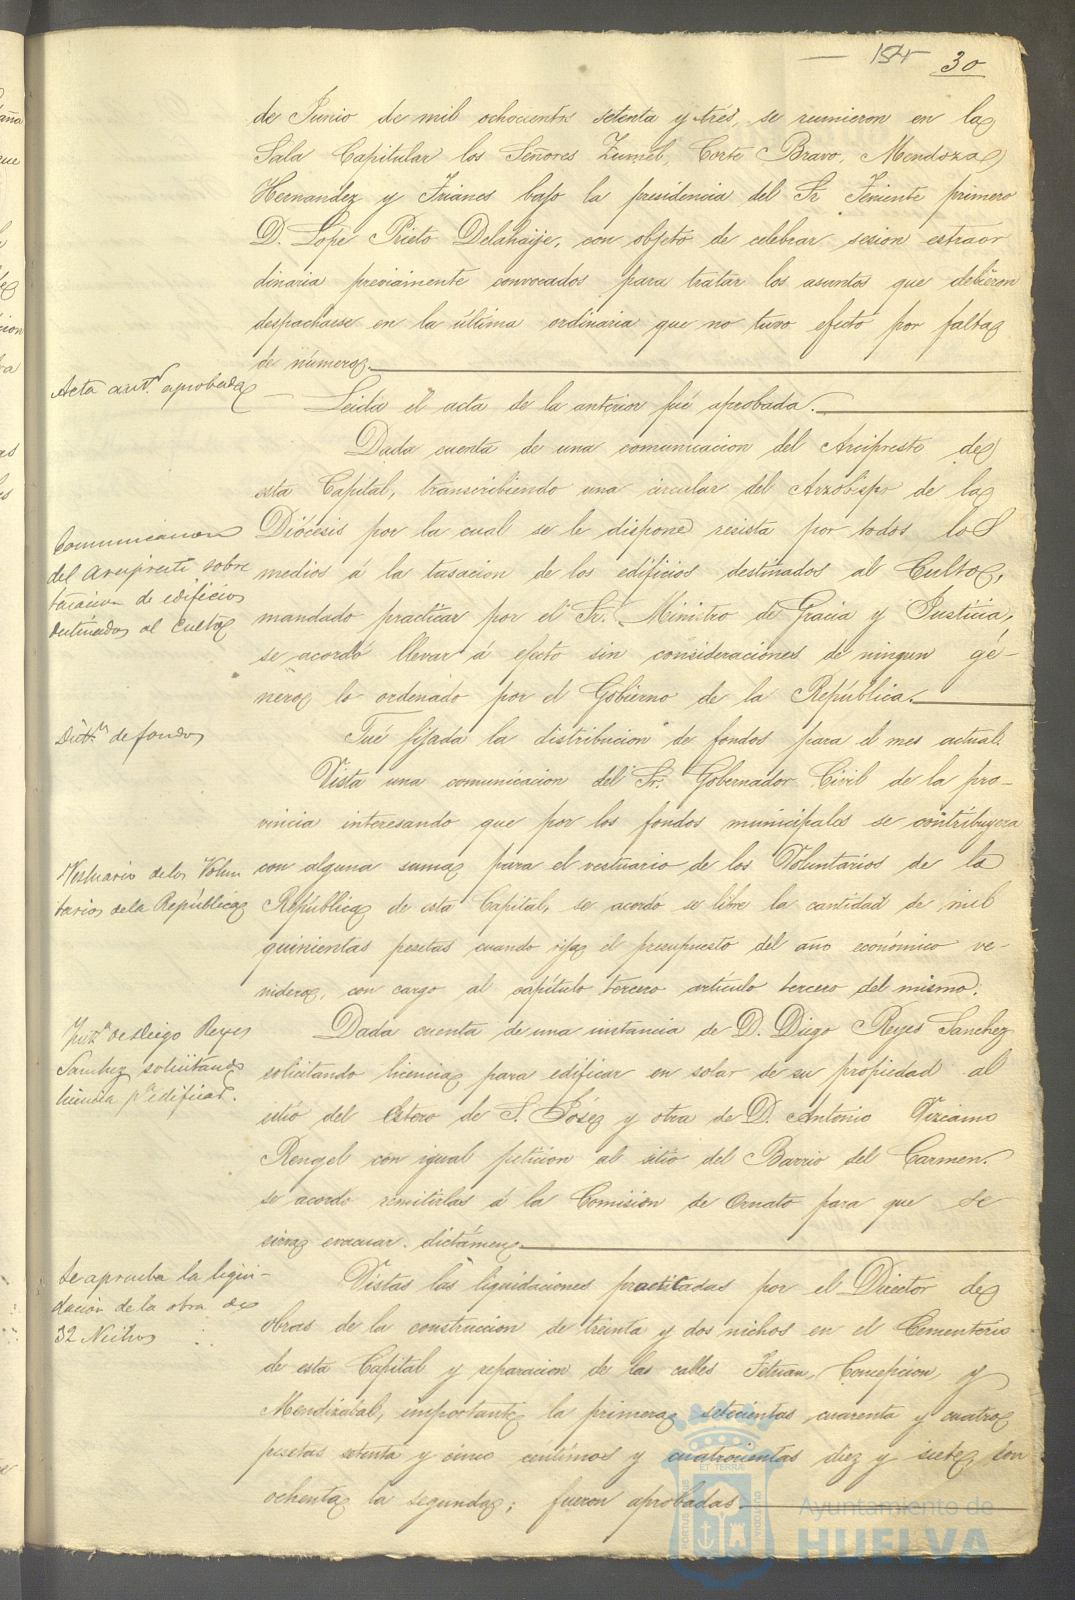 154 30
de Junio de mil ochocientos setenta y tres, se reunieron en la
Sala Capitular los Señores Zumel, Corte Bravo, Mendoza
Hernandez y Trianes bajo la presidencia del Sr Teniente primero
D. Lope Prieto Delahaije, con objeto de celebrar sesion estraor
dinaria previamente convocados para tratar los asuntos que debieron
despacharse en la última ordinaria que no tuvo efecto por falta
de número.
Acta antr. aprobada
Leida el acta de la anterior fué aprobada.
Dada cuenta de una comunicacion del Arcipreste de
esta Capital, transcribiendo una circular del Arzobispo de la
Diócesis por la cual se le dispone resista por todos los
medios á la tasacion de los edificios destinados al Culto,
mandado practicar por el Sr. Ministro de Gracia y Justicia,
se acordó llevar á efecto sin consideraciones de ningun gé-
nero lo ordenado por el Gobierno de la República.
Comunicacion
del Arcipreste sobre
tasacion de edificios
destinados al Culto
Distn. de fondos
Fué fijada la distribucion de fondos para el mes actual.
Vista una comunicacion del Sr. Gobernador Civil de la pro-
vincia interesando que por los fondos municipales se contribuyera
con alguna suma para el vestuario de los Voluntarios de la
República de esta Capital, se acordó se libre la cantidad de mil
quinientas pesetas cuando rija el presupuesto del año económico ve-
nidero, con cargo al capítulo tercero artículo tercero del mismo.
Vestuario de los Volun
tarios de la República
Dada cuenta de una instancia de D. Diego Reyes Sanchez
solicitando licencia para edificar en solar de su propiedad al
sitio del Estero de S. José y otra de D. Antonio Vizcaino
Rengel con igual peticion al sitio del Barrio del Carmen.
se acordó remitirlas á la Comision de Ornato para que se
sirva evacuar dictámen.
Insta. de Diego Reyes
Sanchez solicitando
licencia pa. edificar.
Vistas las liquidaciones practicadas por el Director de
obras de la construccion de treinta y dos nichos en el Cementerio
de esta Capital y reparacion de las calles Tetuan, Concepcion, y
Mendizabal, importante la primera setecientas cuarenta y cuatro
pesetas setenta y cinco centimos y cuatrocientas diez y siete con
ochenta la segunda; fueron aprobadas.
Se aprueba la liqui-
dacion de la obra de
32 Nichos
PORTUS MARIS ET TERRAE CUSTODIA
Ayuntamiento de
HUELVA